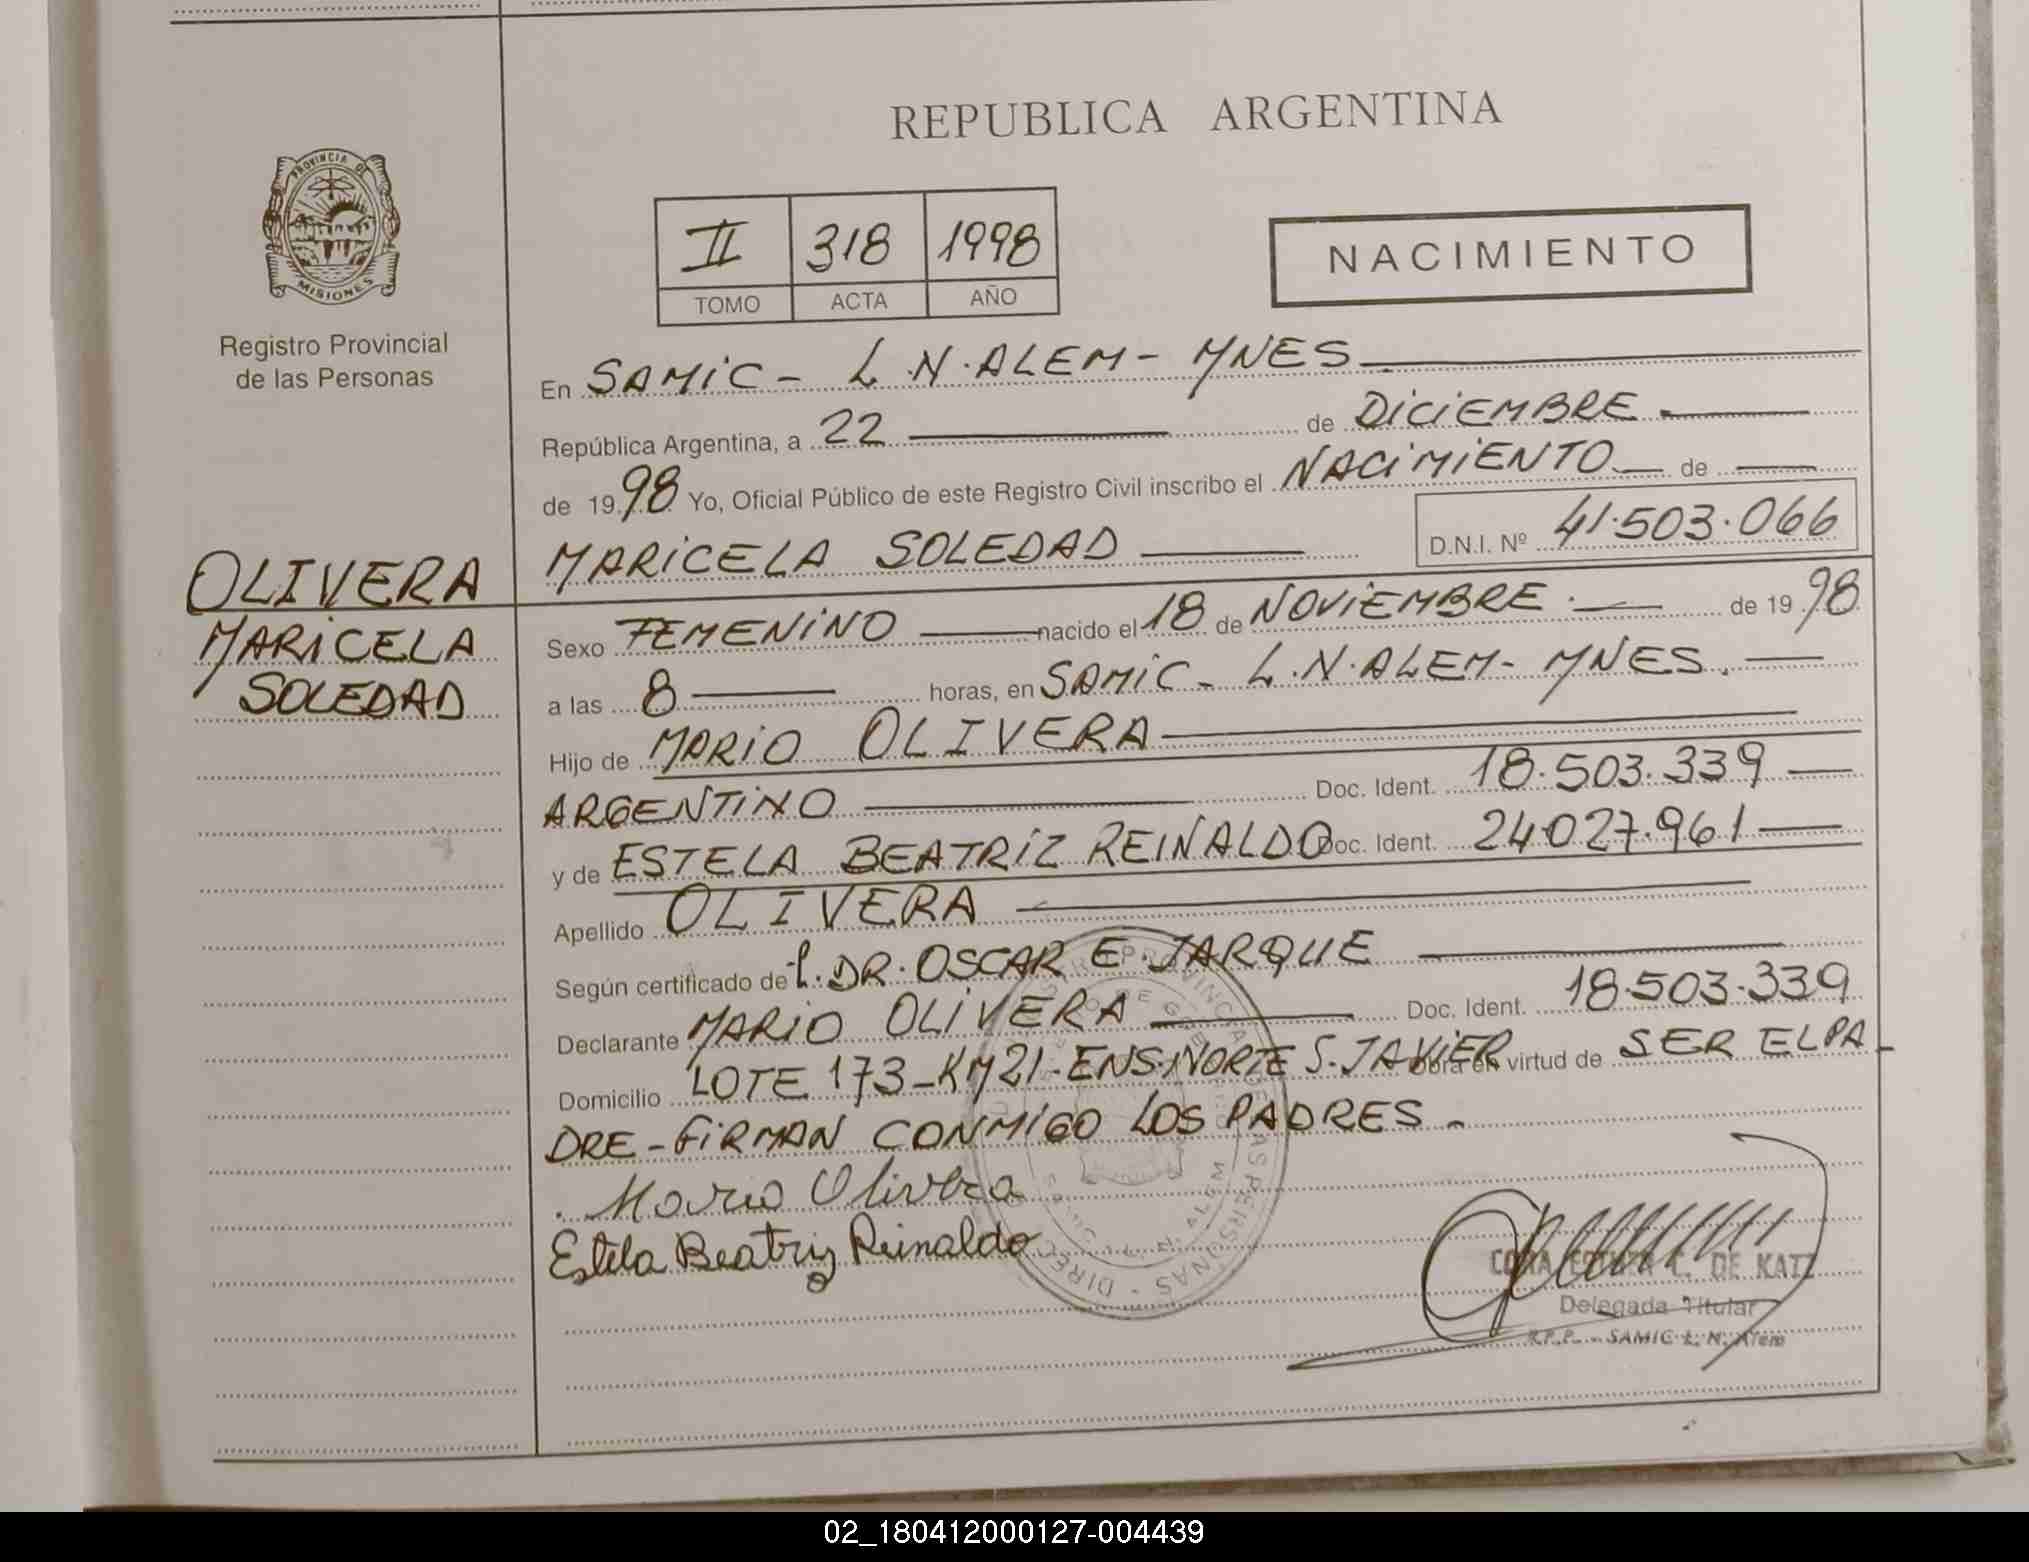 REPUBLICA ARGENTINA
PROVINCIA DE
MISIONES
Registro Provincial
de las Personas
II 318 1998
TOMO ACTA AÑO
NACIMIENTO
En SAMIC - L.N.ALEM - MNES
República Argentina, a 22 de DICIEMBRE
de 1998 Yo, Oficial Público de este Registro Civil inscribo el NACIMIENTO de
MARICELA SOLEDAD D.N.I. Nº 41.503.066
OLIVERA
MARICELA
SOLEDAD
Sexo FEMENINO nacido el 18 de NOVIEMBRE. de 1998
a las 8 horas, en SAMIC - L.N.ALEM - MNES.
Hijo de MARIO OLIVERA
ARGENTINO Doc. Ident. 18.503.339
y de ESTELA BEATRIZ REINALDO Doc. Ident. 24.027.961
Apellido OLIVERA
Según certificado de DR. OSCAR E. JARQUE
Declarante MARIO OLIVERA Doc. Ident. 18.503.339
Domicilio LOTE 173-KM21-ENS.NORTE S.JAVIER Obra en virtud de SER EL PA-
DRE - FIRMAN CONMIGO LOS PADRES.
Mario Olivera
Estela Beatriz Reinaldo
C. DE KATZ
Delegada Titular
R.P.P. - SAMIC L. N. Alem
02_180412000127-004439